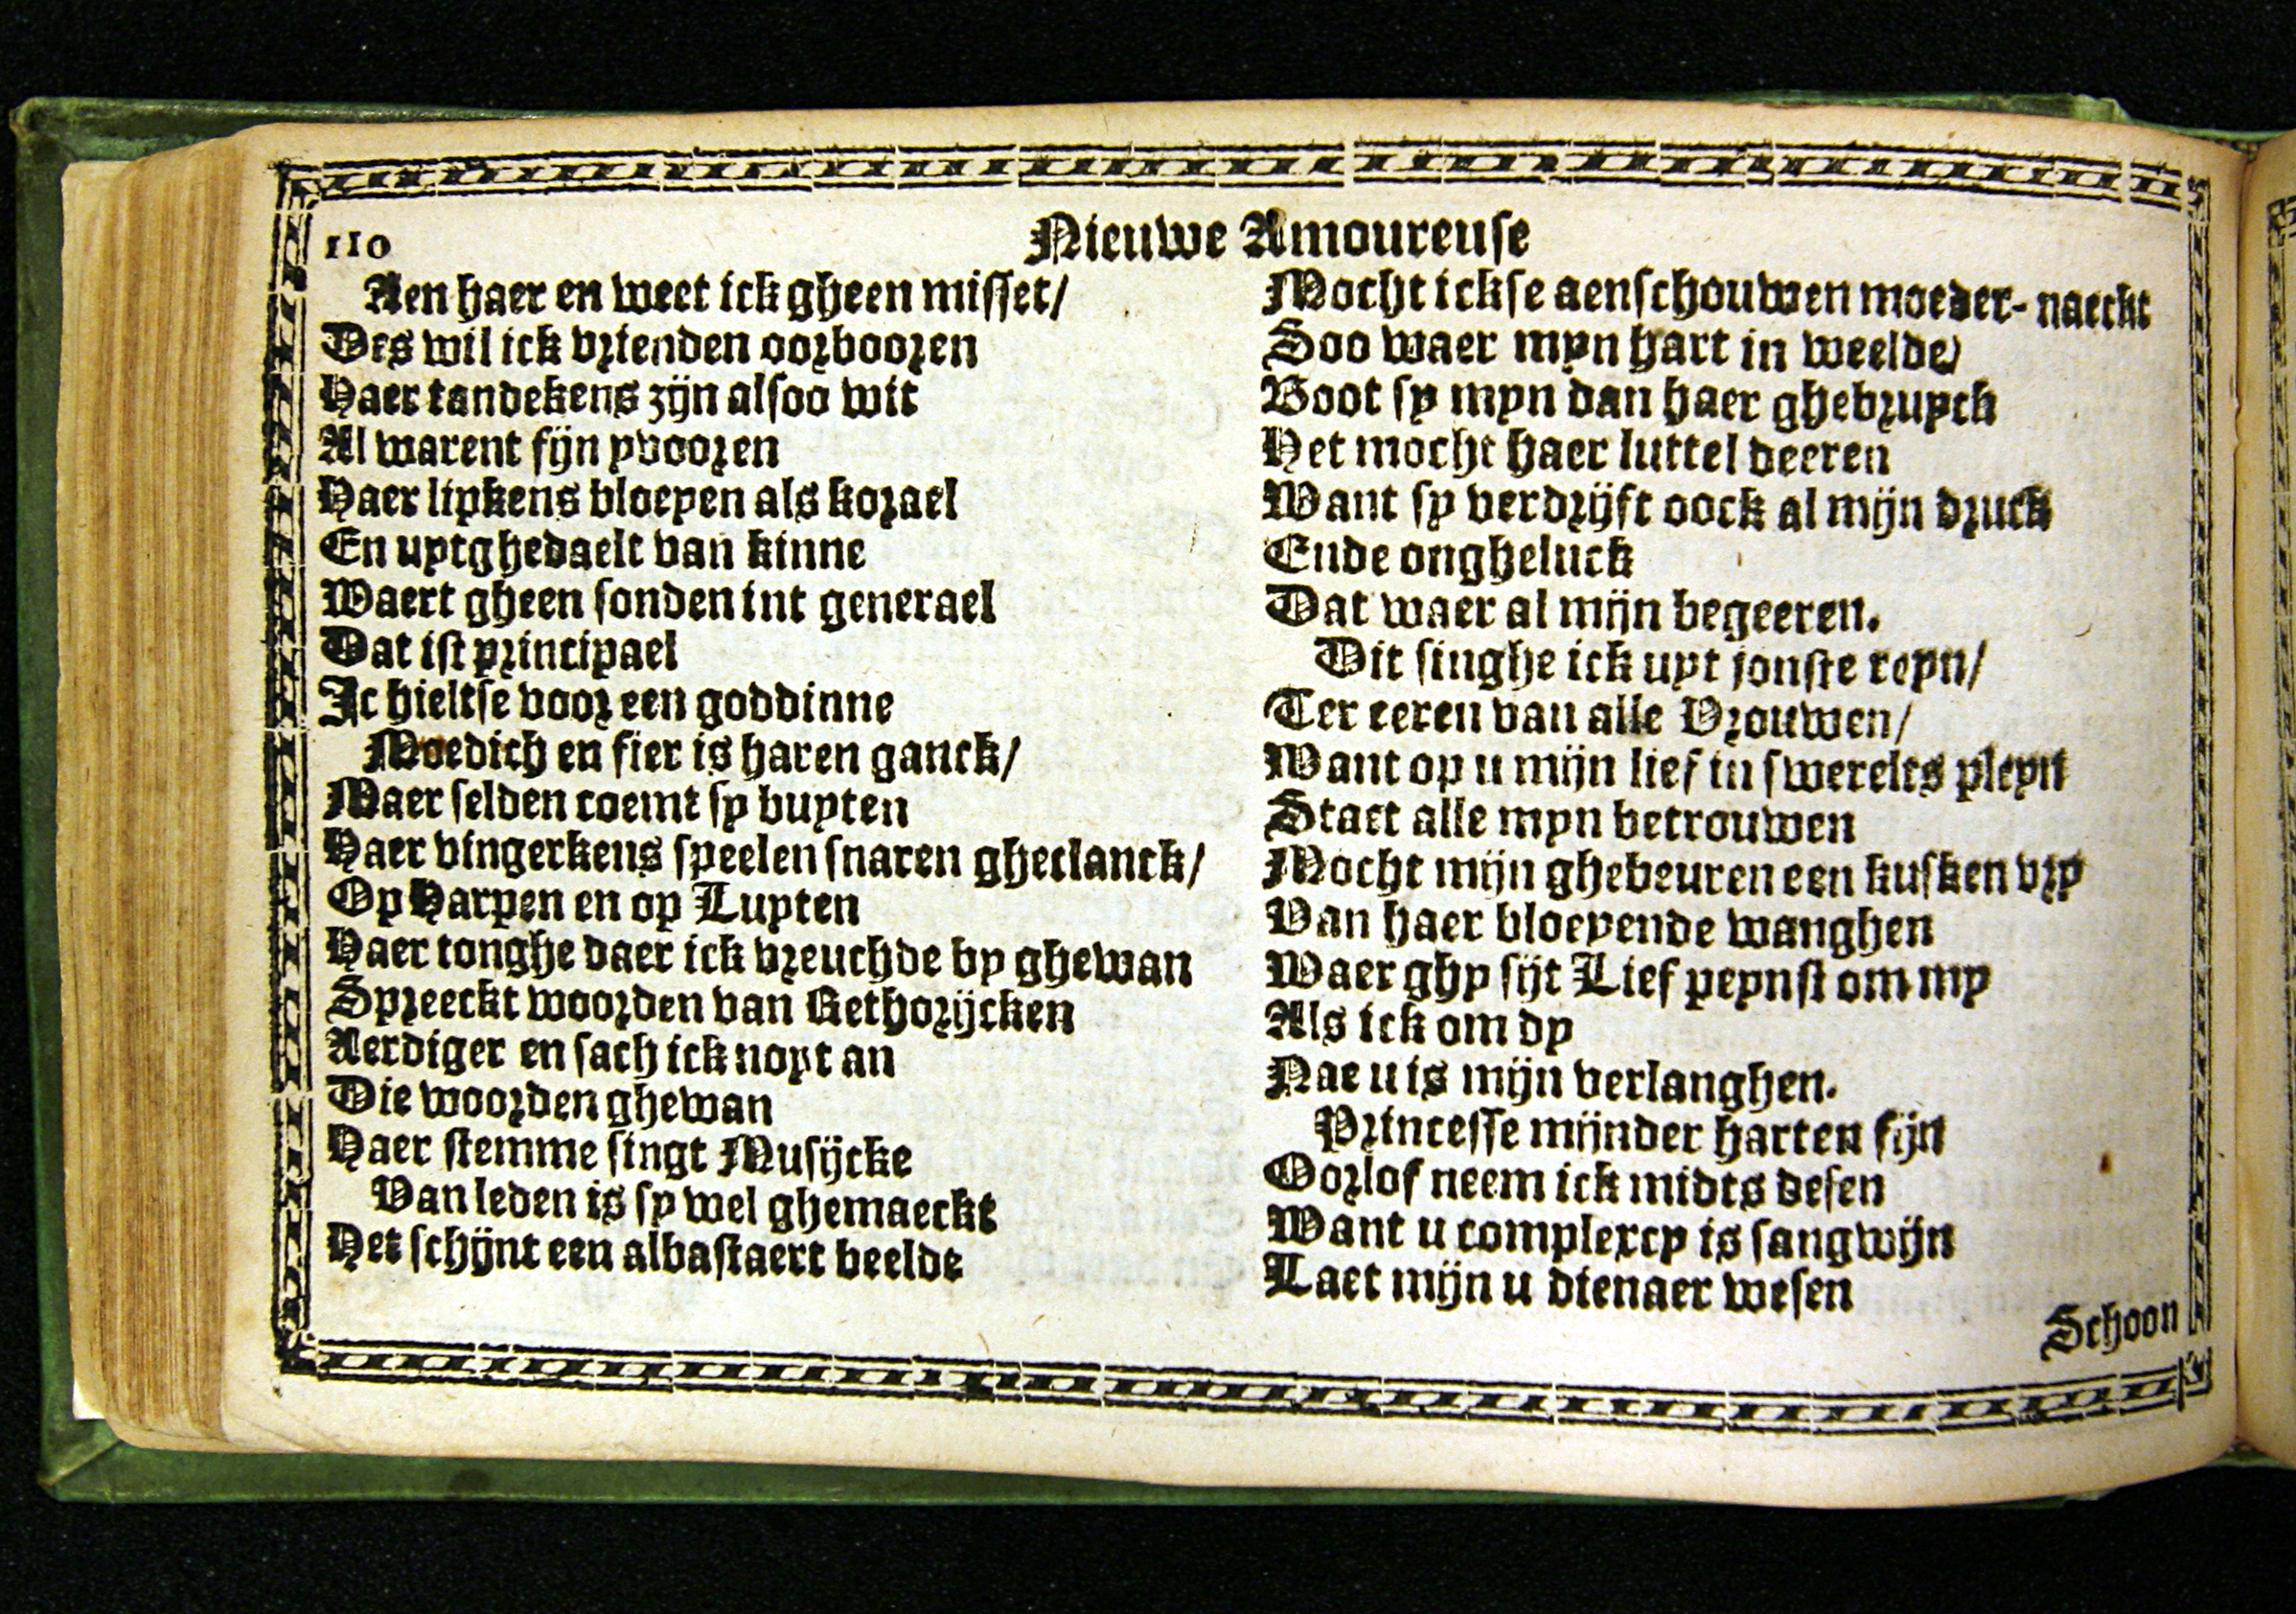 110
Nieuwe Amoureuse
Aen haer en weet ick gheen misset/
Des wil ick vrienden oorbooren
Haer tandekens zijn alsoo wit
Al warent fijn yvooren
Haer lipkens bloeyen als korael
En uytghedaelt van kinne
Waert gheen sonden int generael
Dat ist principael
Ic hieltse voor een goddinne
Moedich en fier is haren ganck/
Maer selden coemt sy buyten
Haer vingerkens speelen snaren gheclanck/
Op Harpen en op Luyten
Haer tonghe daer ick vreuchde by ghewan
Spreeckt woorden van Rethorijcken
Aerdiger en sach ick noyt an
Die woorden ghewan
Haer stemme singt Musijcke
Van leden is sy wel ghemaeckt
Het schijnt een albastaert beelde
Mocht ickse aenschouwen moeder-naeckt
Soo waer myn hart in weelde/
Boot sy myn dan haer ghebruyck
Het mocht haer luttel deeren
Want sy verdrijft oock al mijn druck
Ende ongheluck
Dat waer al mijn begeeren.
Dit singhe ick uyt jonste reyn/
Ter eeren van alle Vrouwen/
Want op u mijn lief in swerelts pleyn
Staet alle myn betrouwen
Mocht mijn ghebeuren een kusken vry
Van haer bloeyende wanghen
Waer ghy sijt Lief peynst om my
Als ick om dy
Nae u is mijn verlanghen.
Princesse mijnder harten fijn
Oorlof neem ick midts desen
Want u complexcy is sangwijn
Laet mijn u dienaer wesen
Schoon